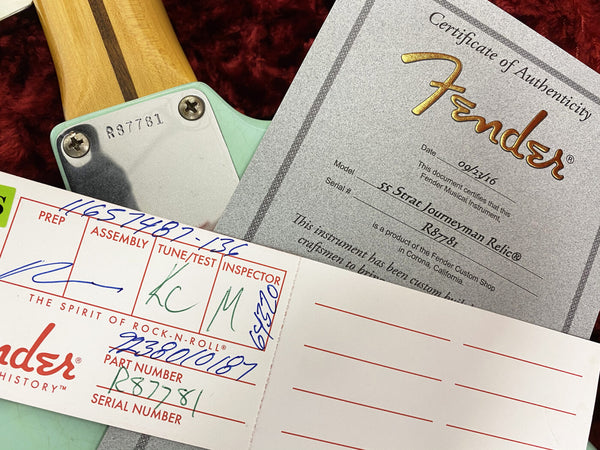 R87781
Certificate of Authenticity
Fender®
Date 09/23/16
This document certifies that this
Fender Musical Instrument,
Model 55 Strat Journeyman Relic®
Serial # R87781
is a product of the Fender Custom Shop
in Corona, California.
This instrument has been custom buil
craftsmen to brin
S
11657487-136
PREP
ASSEMBLY
TUNE/TEST
INSPECTOR
KC
M
THE SPIRIT OF ROCK-N-ROLL®
nder®
HISTORY™
9238010187
PART NUMBER
R87781
SERIAL NUMBER